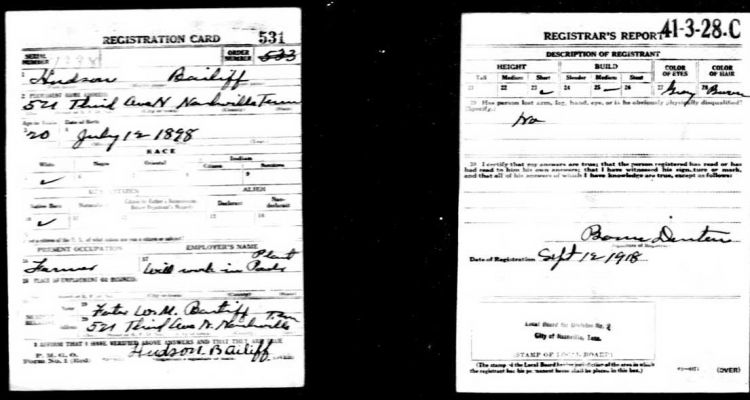 REGISTRATION CARD 531
SERIAL NUMBER 1398 ORDER NUMBER 533
1 Hudson Bailiff
2 PERMANENT HOME ADDRESS
521 Third Ave N Nashville Tenn
Age in Years Date of Birth
20 July 12 1898
RACE
White Negro Oriental Indian
Citizen
✓
U. S. CITIZEN ALIEN
Native Born Declarant Non-declarant
✓
PRESENT OCCUPATION EMPLOYER'S NAME
Farmer Will work in Plant
Name Bailiff
Address 521 Third Ave N. Nashville Tenn
I AFFIRM THAT I HAVE VERIFIED ABOVE ANSWERS AND THAT THEY ARE TRUE
P. M. G. O.
Form No. 1 (Red) Hudson Bailiff (OVER)
REGISTRAR'S REPORT 41-3-28-C
DESCRIPTION OF REGISTRANT
HEIGHT BUILD COLOR OF EYES COLOR OF HAIR
Tall Medium Short Slender Medium Stout
21 22 23 ✓ 24 25 — 26 27 Grey 28 Brown
29 Has person lost arm, leg, hand, eye, or is he obviously physically disqualified?
(Specify.)
No
30 I certify that my answers are true; that the person registered has read or has
had read to him his own answers; that I have witnessed his signature or mark,
and that all of his answers of which I have knowledge are true, except as follows:
Date of Registration Sept 12 1918
Local Board for Division No. 2
City of Nashville, Tenn.
(STAMP OF LOCAL BOARD)
(The stamp of the Local Board having jurisdiction of the area in which
the registrant has his permanent home shall be placed in this box.) (OVER)